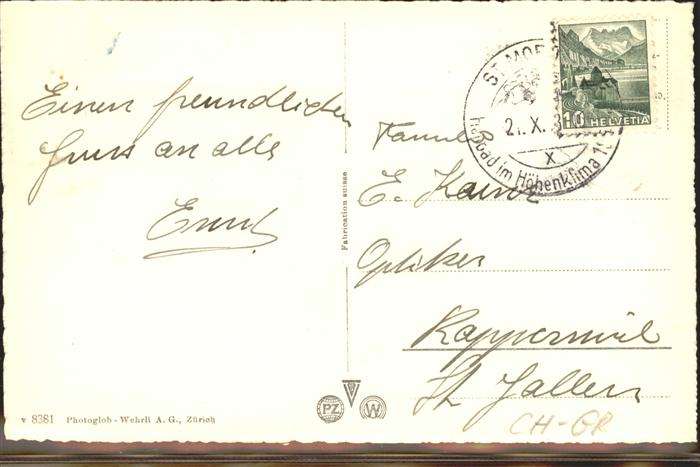 Einen freundlichen
Gruss an alle
Ernst
Familie
E.
Optiker
Rapperswil
St Gallen
CH-GR
ST. MOR
21. X. 3
Heilbad im Höhenklima 1
X
10 HELVETIA
Fabrication suisse
v 8381 Photoglob-Wehrli A. G., Zürich
PZ
W